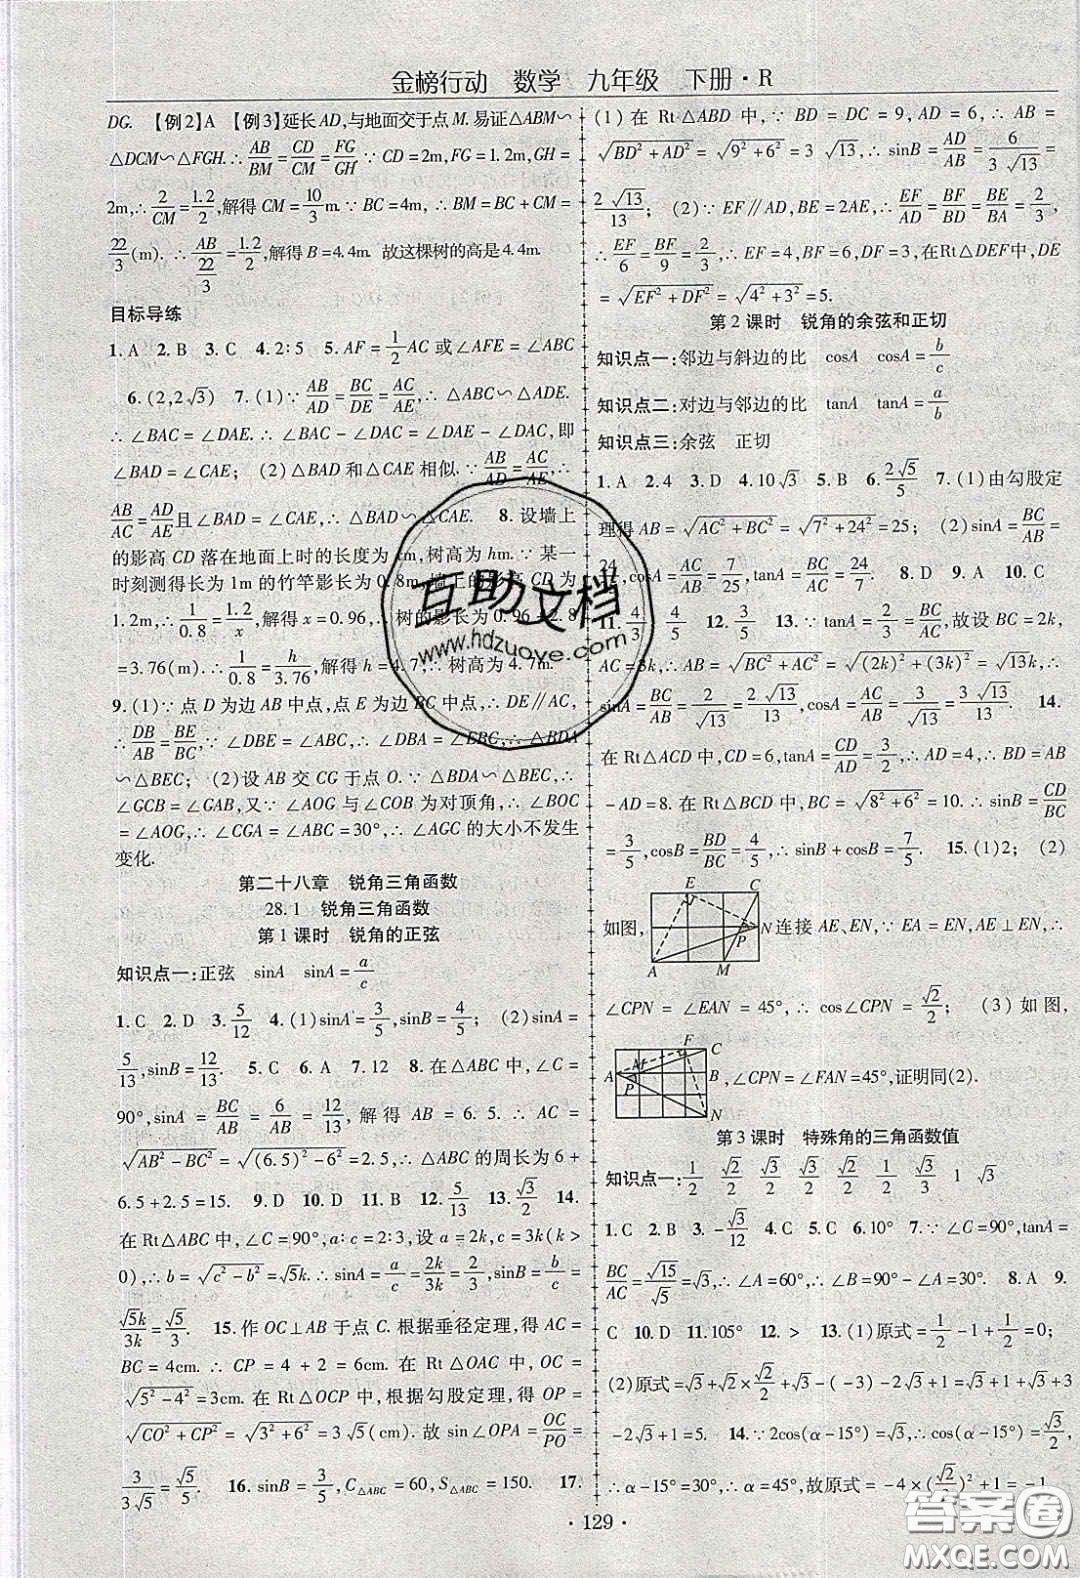 金榜行动 数学 九年级 下册·R
DG. 【例2】A 【例3】延长AD,与地面交于点M.易证△ABM∽
△DCM∽△FGH.∴AB/BM=CD/CM=FG/GH.∵CD=2m,FG=1.2m,GH=
2m,∴2/CM=1.2/2,解得CM=10/3m.∵BC=4m,∴BM=BC+CM=
22/3(m).∴AB/(22/3)=1.2/2,解得B=4.4m. 故这棵树的高是4.4m.
目标导练
1.A 2.B 3.C 4.2∶5 5.AF=1/2AC或∠AFE=∠ABC
6.(2,2√3) 7.(1)∵AB/AD=BC/DE=AC/AE,∴△ABC∽△ADE.
∴∠BAC=∠DAE.∴∠BAC-∠DAC=∠DAE-∠DAC,即
∠BAD=∠CAE；(2)△BAD和△CAE相似.∵AB/AD=AC/AE,∴
AB/AC=AD/AE且∠BAD=∠CAE,∴△BAD∽△CAE. 8.设墙上
的影高CD落在地面上时的长度为xm,树高为hm.∵某一
时刻测得长为1m的竹竿影长为0.8m,墙上的影高CD为
1.2m,∴1/0.8=1.2/x,解得x=0.96,∴树的影长为0.96+2.8
=3.76(m).∴1/0.8=h/3.76,解得h=4.7,∴树高为4.7m.
9.(1)∵点D为边AB中点,点E为边BC中点,∴DE∥AC,
∴DB/AB=BE/BC,∵∠DBE=∠ABC,∴∠DBA=∠EBC,∴△BDA
∽△BEC；(2)设AB交CG于点O.∵△BDA∽△BEC,∴
∠GCB=∠GAB,又∵∠AOG与∠COB为对顶角,∴∠BOC
=∠AOG,∴∠CGA=∠ABC=30°,∴∠AGC的大小不发生
变化.
第二十八章 锐角三角函数
28.1 锐角三角函数
第1课时 锐角的正弦
知识点一:正弦 sinA sinA=a/c
1.C 2.D 3.5/12 4.(1)sinA=3/5,sinB=4/5；(2)sinA=
5/13,sinB=12/13. 5.C 6.A 7.12 8.在△ABC中,∠C=
90°,sinA=BC/AB=6/AB=12/13,解得AB=6.5.∴AC=
√(AB²-BC²)=√((6.5)²-6²)=2.5,∴△ABC的周长为6+
6.5+2.5=15. 9.D 10.D 11.B 12.5/13 13.√3/2 14.
在Rt△ABC中,∠C=90°,a∶c=2∶3,设a=2k,c=3k(k>
0),∴b=√(c²-b²)=√5k.∴sinA=a/c=2k/3k=2/3,sinB=b/c=
√5k/3k=√5/3. 15.作OC⊥AB于点C.根据垂径定理,得AC=
BC=4cm.∴CP=4+2=6cm.在Rt△OAC中,OC=
√(5²-4²)=3cm.在Rt△OCP中,根据勾股定理,得OP=
√(CO²+CP²)=√(3²+6²)=3√5cm.故sin∠OPA=OC/PO=
3/(3√5)=√5/5. 16.sinB=3/5,C△ABC=60,S△ABC=150. 17.
(1)在Rt△ABD中,∵BD=DC=9,AD=6,∴AB=
√(BD²+AD²)=√(9²+6²)=3√13,∴sinB=AD/AB=6/(3√13)=
2√13/13；(2)∵EF∥AD,BE=2AE,∴EF/AD=BF/BD=BE/BA=2/3,
∴EF/6=BF/9=2/3,∴EF=4,BF=6,∴DF=3,在Rt△DEF中,DE
=√(EF²+DF²)=√(4²+3²)=5.
第2课时 锐角的余弦和正切
知识点一:邻边与斜边的比 cosA cosA=b/c
知识点二:对边与邻边的比 tanA tanA=a/b
知识点三:余弦 正切
1.A 2.4 3.D 4.10√3 5.B 6.2√5/5 7.(1)由勾股定
理得AB=√(AC²+BC²)=√(7²+24²)=25；(2)sinA=BC/AB=
24/,cosA=AC/AB=7/25,tanA=BC/AC=24/7. 8.D 9.A 10.C
11.4/3 4/5 12.3/5 13.∵tanA=2/3=BC/AC,故设BC=2k,
AC=3k,∴AB=√(BC²+AC²)=√((2k)²+(3k)²)=√13k,∴
sinA=BC/AB=2/√13=2√13/13,cosA=AC/AB=3/√13=3√13/13. 14.
在Rt△ACD中,CD=6,tanA=CD/AD=3/2,∴AD=4,∴BD=AB
-AD=8.在Rt△BCD中,BC=√(8²+6²)=10.∴sinB=CD/BC
=3/5,cosB=BD/BC=4/5,∴sinB+cosB=7/5. 15.(1)2；(2)
如图, E C N P A M 连接AE,EN,∵EA=EN,AE⊥EN,∴
∠CPN=∠EAN=45°,∴cos∠CPN=√2/2；(3)如图,
F C M A P B N ,∠CPN=∠FAN=45°,证明同(2).
第3课时 特殊角的三角函数值
知识点一:1/2 √2/2 √3/2 √3/2 √2/2 √3/2 1 √3
1.C 2.B 3.-√3/12 4.C 5.C 6.10° 7.∵∠C=90°,tanA=
BC/AC=√15/√5=√3,∴∠A=60°,∴∠B=90°-∠A=30°. 8.A 9.
C 10.D 11.105° 12.> 13.(1)原式=1/2-1+1/2=0；
(2)原式=√3+√2×√2/2+√3-(-3)-2√3+1=√3+1+√3+3
-2√3+1=5. 14.∵2cos(α-15°)=√3,∴cos(α-15°)=√3/2
∴α-15°=30°,∴α=45°,∴α+15°=60°,故原式=-4×(√2/2)²+1=-1
·129·
互助文档
www.hdzuoye.com
答案圈
MXQE.COM